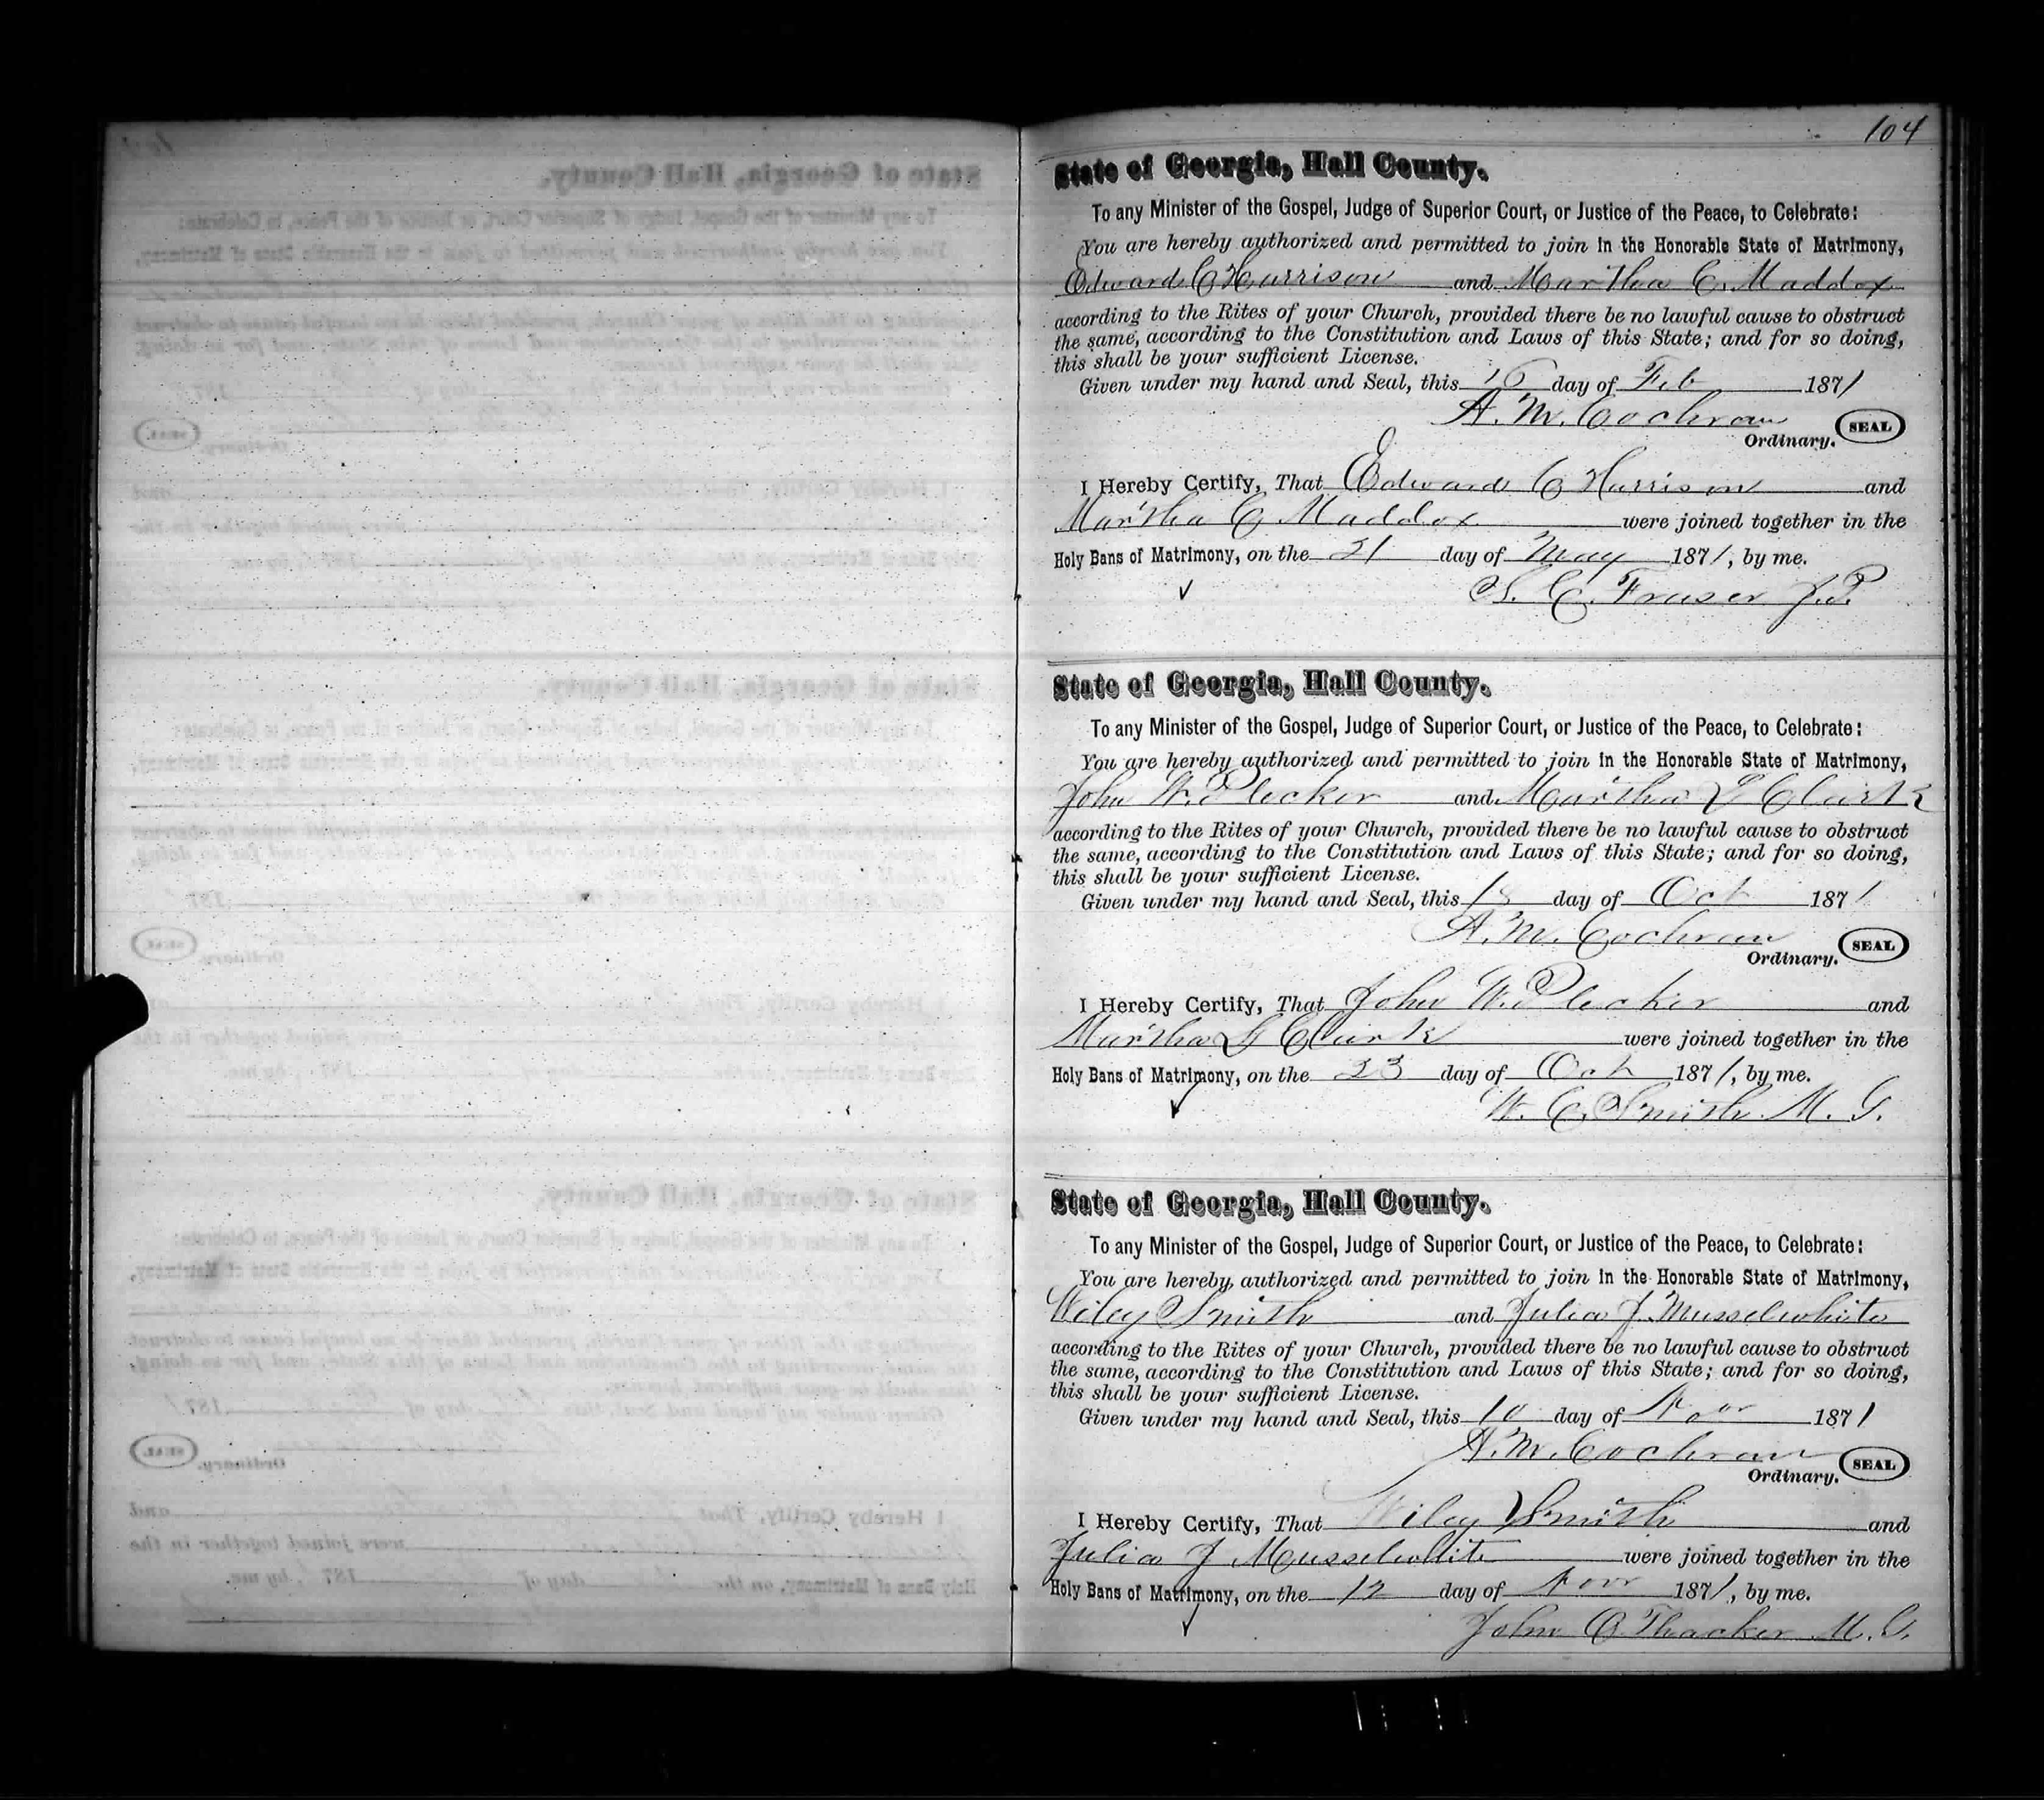 104
State of Georgia, Hall County.
To any Minister of the Gospel, Judge of Superior Court, or Justice of the Peace, to Celebrate:
You are hereby authorized and permitted to join in the Honorable State of Matrimony,
Edward C Harrison and Martha C. Maddox
according to the Rites of your Church, provided there be no lawful cause to obstruct
the same, according to the Constitution and Laws of this State; and for so doing,
this shall be your sufficient License.
Given under my hand and Seal, this day of Feb 1871
A. M. Cochran
Ordinary. SEAL
I Hereby Certify, That Edward C Harrison and
Martha C Maddox were joined together in the
Holy Bans of Matrimony, on the 21 day of May 1871, by me.
S. C. Fraser J.P.
State of Georgia, Hall County.
To any Minister of the Gospel, Judge of Superior Court, or Justice of the Peace, to Celebrate:
You are hereby authorized and permitted to join in the Honorable State of Matrimony,
John W. Plecker and Martha Clark
according to the Rites of your Church, provided there be no lawful cause to obstruct
the same, according to the Constitution and Laws of this State; and for so doing,
this shall be your sufficient License.
Given under my hand and Seal, this 18 day of Oct 1871
A. M. Cochran
Ordinary. SEAL
I Hereby Certify, That John W. Plecker and
Martha Clark were joined together in the
Holy Bans of Matrimony, on the 23 day of Oct 1871, by me.
W. C. Smith M. G.
State of Georgia, Hall County.
To any Minister of the Gospel, Judge of Superior Court, or Justice of the Peace, to Celebrate:
You are hereby authorized and permitted to join in the Honorable State of Matrimony,
Wiley Smith and Julia J. Musselwhite
according to the Rites of your Church, provided there be no lawful cause to obstruct
the same, according to the Constitution and Laws of this State; and for so doing,
this shall be your sufficient License.
Given under my hand and Seal, this 10 day of Nov 1871
A. M. Cochran
Ordinary. SEAL
I Hereby Certify, That Wiley Smith and
Julia J Musselwhite were joined together in the
Holy Bans of Matrimony, on the 12 day of Nov 1871, by me.
John C. Thacker M. G.